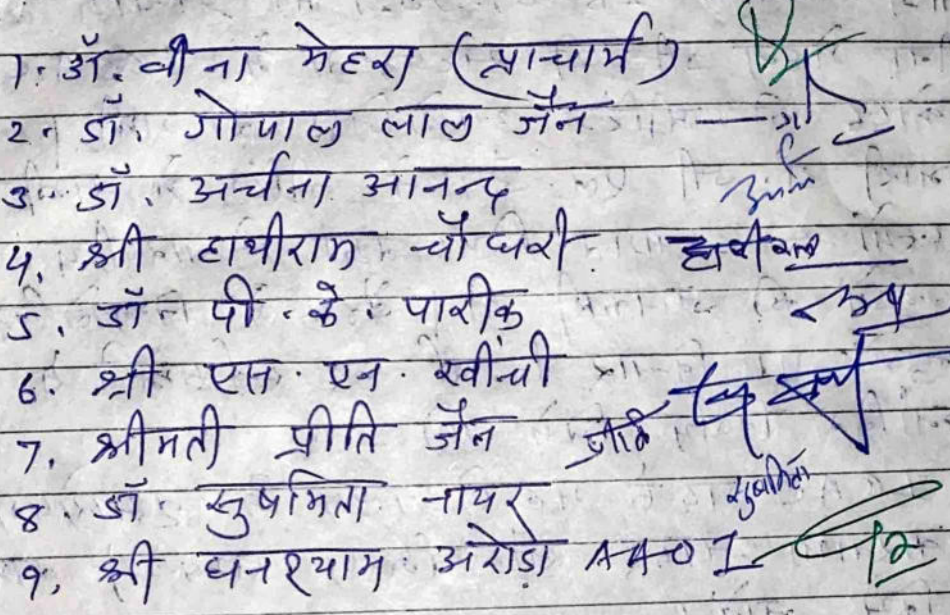 1. डॉ. वीना मेहरा (प्राचार्य)
2. डॉ. गोपाल लाल जैन
3. डॉ. अर्चना आनन्द
4. श्री हाथीराम चौधरी हाथीराम
5. डॉ. पी. के. पारीक
6. श्री एस. एन. खींची
7. श्रीमती प्रीति जैन प्रीति
8. डॉ. सुषमिता नायर सुषमिता
9. श्री घनश्याम अरोड़ा AAO I